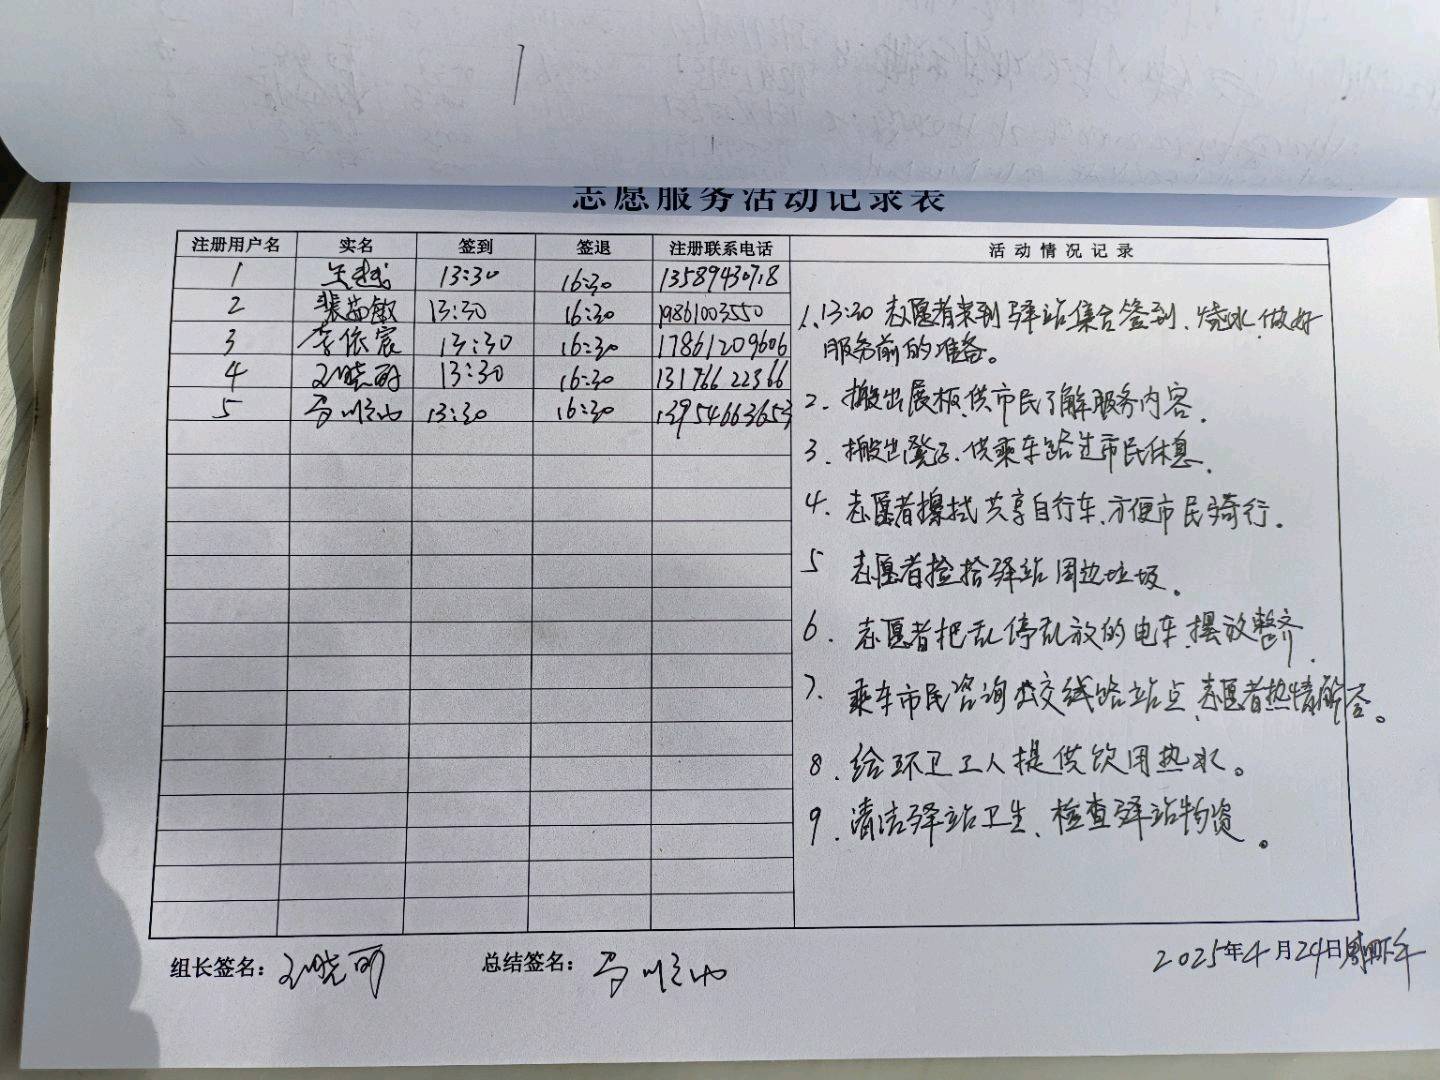 志愿服务活动记录表
注册用户名 实名 签到 签退 注册联系电话 活动情况记录
1 13:30 16:30 13589430718
2 裴茹敏 13:30 16:30 19861003550
3 李依宸 13:30 16:30 17861209606
4 王晓丽 13:30 16:30 13176622366
5 马顺 13:30 16:30 13954663653
1、13:30 志愿者来到驿站集合签到、烧水、做好
服务前的准备。
2. 搬出展板,供市民了解服务内容.
3. 搬出凳子、供乘车路过市民休息.
4. 志愿者擦拭共享自行车、方便市民骑行.
5 志愿者捡拾驿站周边垃圾。
6. 志愿者把乱停乱放的电车,摆放整齐.
7. 乘车市民咨询公交线路站点,志愿者热情解答。
8. 给环卫工人提供饮用热水。
9. 清洁驿站卫生、检查驿站物资。
组长签名: 王晓丽 总结签名: 马顺 2025年4月24日 下午